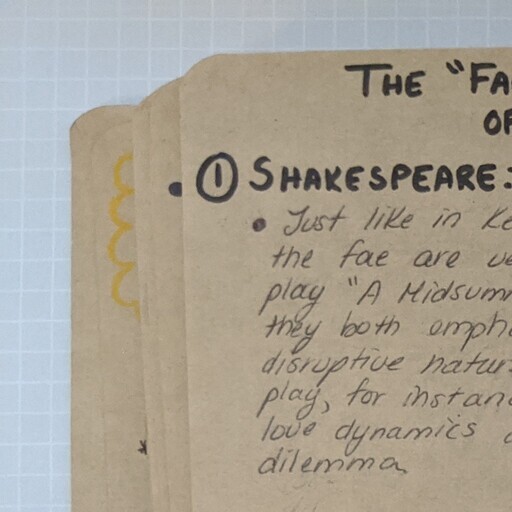 THE "FA
OF
① SHAKESPEARE:
• Just like in Ke
the fae are ve
play "A Midsumm
they both empha
disruptive natur
play, for instanc
love dynamics
dilemma